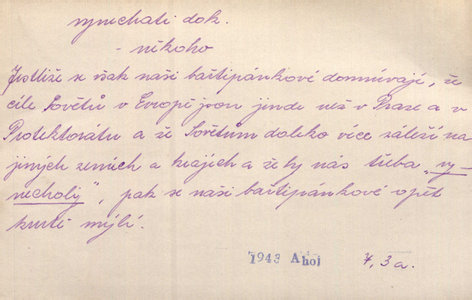 vynechati dok.
- někoho
Jestliže se však naši baštipánkové domnívají, že
cíle Sovětů v Evropě jsou jinde než v Praze a v
Protektorátu a že Sovětům daleko více záleží na
jiných zemích a krajích a že by nás třeba „vy-
nechaly", pak se naši baštipánkové opět
krutě mýlí.
1943 Ahoj 7, 3a.